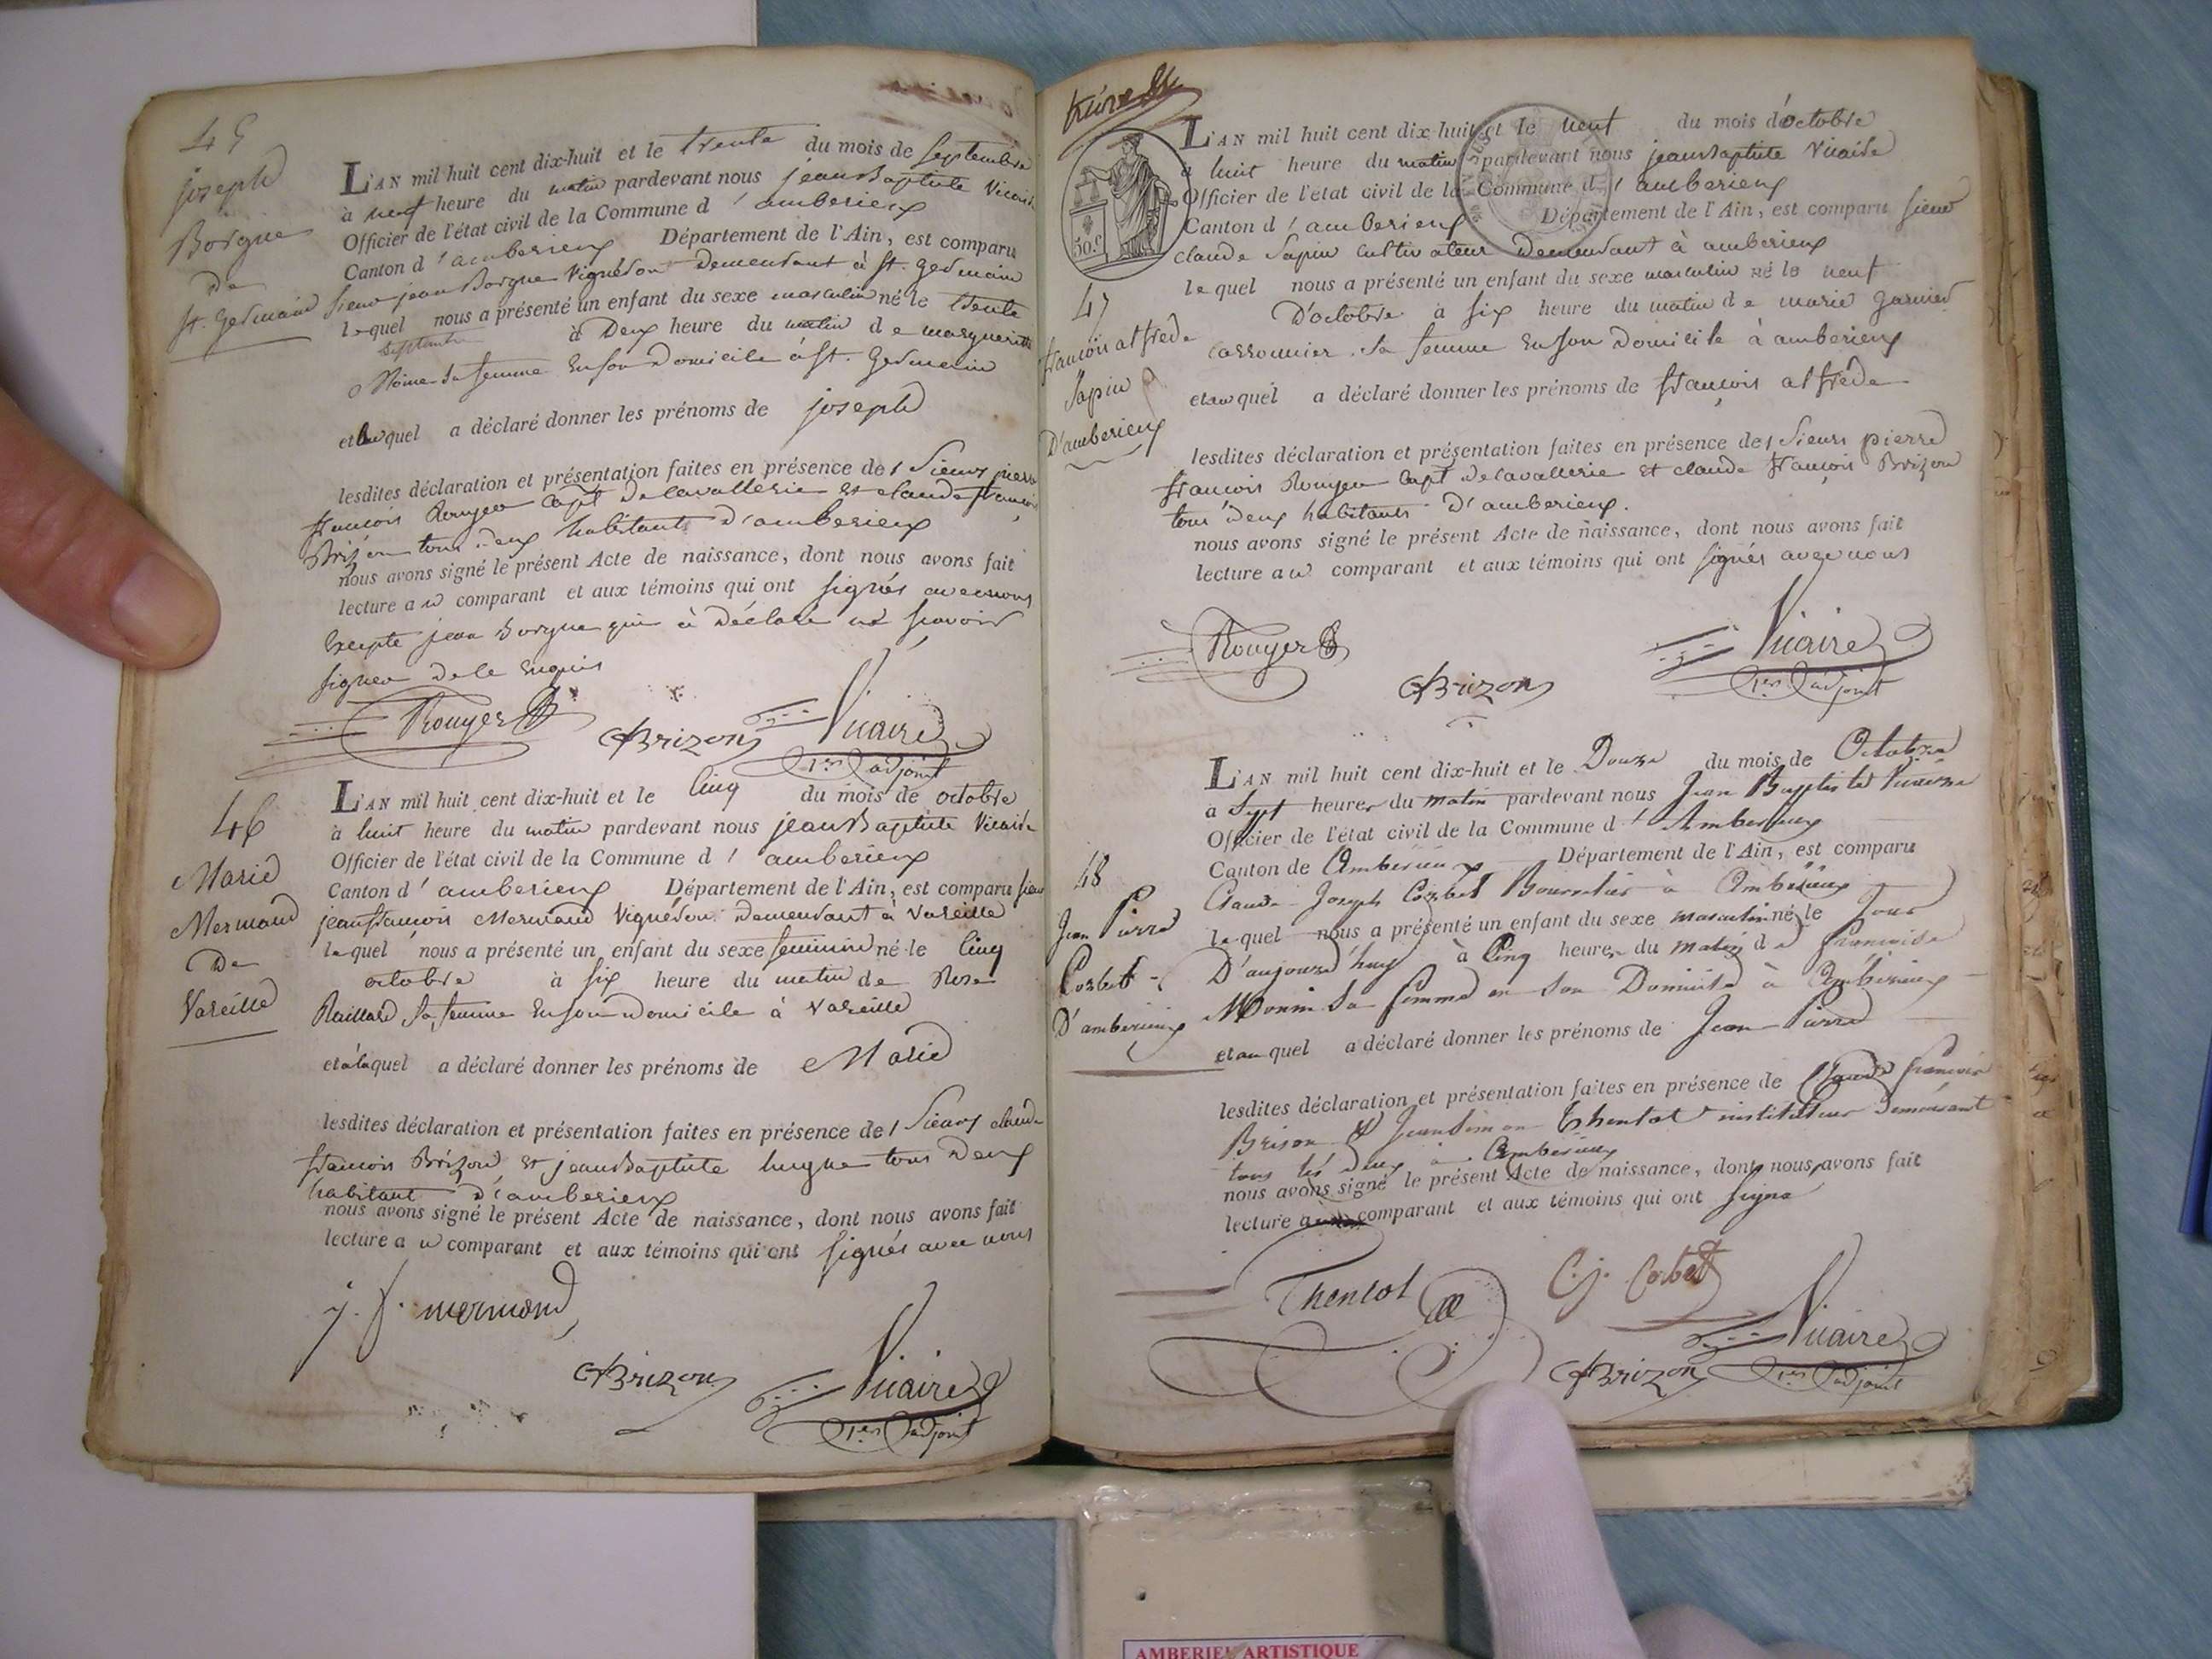 45
joseph
Borgne
De
St. Germain
L'AN mil huit cent dix-huit et le trente du mois de septembre
à neuf heure du matin pardevant nous jean Baptiste Vicaire
Officier de l'état civil de la Commune d' amberieux
Canton d' amberieux Département de l'Ain, est comparu
Sieur jean Borgne Vigneron demeurant à St. Germain
lequel nous a présenté un enfant du sexe masculin né le trente
septembre à Deux heure du matin de marguerite
sa femme En son Domicile à St. Germain
et auquel a déclaré donner les prénoms de joseph
lesdites déclaration et présentation faites en présence des Sieurs pierre
françois Rouyer Capt. De cavallerie et claude françois
Brizon tous deux habitants d'amberieux
nous avons signé le présent Acte de naissance, dont nous avons fait
lecture au comparant et aux témoins qui ont signés avec nous
Excepté jean Borgne qui à Déclaré ne scavoir
signer de ce Enquis
Rouyer
Brizon
Vicaire
1er adjoint
46
Marie
Mermand
De
Vareille
L'AN mil huit cent dix-huit et le Cinq du mois de octobre
à huit heure du matin pardevant nous jean Baptiste Vicaire
Officier de l'état civil de la Commune d' amberieux
Canton d' amberieux Département de l'Ain, est comparu sieur
jean françois Mermand Vigneron Demeurant à Vareille
lequel nous a présenté un enfant du sexe feminin né le Cinq
octobre à six heure du matin de Rose
Raillard sa femme En son Domicile à Vareille
et àlaquel a déclaré donner les prénoms de Marie
lesdites déclaration et présentation faites en présence des Sieurs claude
francois Brizon et jean Baptiste hugne tous Deux
habitant d'amberieux
nous avons signé le présent Acte de naissance, dont nous avons fait
lecture au comparant et aux témoins qui ont signés avec nous
j. f. mermand
Brizon
Vicaire
1er adjoint
50.c
47
francois alfrede
Sapin
D'amberieux
L'AN mil huit cent dix-huit et le neuf du mois d'octobre
à huit heure du matin pardevant nous jean Baptiste Vicaire
Officier de l'état civil de la Commune d' amberieux
Canton d' amberieux Département de l'Ain, est comparu sieur
claude Sapin Cultivateur Demeurant à amberieux
lequel nous a présenté un enfant du sexe masculin né le neuf
D'octobre à six heure du matin de marie garnier
sa femme En son Domicile à amberieux
et auquel a déclaré donner les prénoms de francois alfrede
lesdites déclaration et présentation faites en présence des Sieurs pierre
francois Rouyer Capt. de cavallerie et claude francois Brizon
tous deux habitants d'amberieux.
nous avons signé le présent Acte de naissance, dont nous avons fait
lecture au comparant et aux témoins qui ont signés avec nous
Rouyer
Brizon
Vicaire
1er adjoint
48
Jean Pierre
Corbet
D'amberieux
L'AN mil huit cent dix-huit et le Douze du mois de Octobre
à Sept heures du matin pardevant nous Jean Baptiste Vicaire
Officier de l'état civil de la Commune d' Amberieux
Canton de Amberieux Département de l'Ain, est comparu
Claude Joseph Corbet Bourrelier à Amberieux
lequel nous a présenté un enfant du sexe masculin né le Jour
D'aujourd'huy à Cinq heures du matin de francoise
Monin Sa femme en Son Domicile à Amberieux
et au quel a déclaré donner les prénoms de Jean Pierre
lesdites déclaration et présentation faites en présence de Claude francois
Brison et Jean Simon Thentot instituteur demeurant
tous les deux à Amberieux
nous avons signé le présent Acte de naissance, dont nous avons fait
lecture comparant et aux témoins qui ont signé
Thentot
C. j. Corbet
Brizon
Vicaire
1er adjoint
ARTISTIQUE